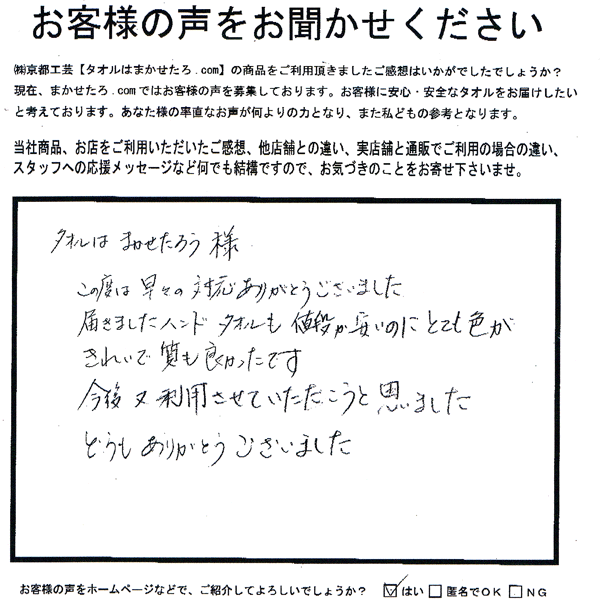 お客様の声をお聞かせください
㈱京都工芸【タオルはまかせたろ.com】の商品をご利用頂きましたご感想はいかがでしたでしょうか?
現在、まかせたろ.comではお客様の声を募集しております。お客様に安心・安全なタオルをお届けしたい
と考えております。あなた様の率直なお声が何よりの力となり、また私どもの参考となります。
当社商品、お店をご利用いただいたご感想、他店舗との違い、実店舗と通販でご利用の場合の違い、
スタッフへの応援メッセージなど何でも結構ですので、お気づきのことをお寄せ下さいませ。
タオルは まかせたろう 様
この度は 早々の 対応 ありがとうございました
届きましたハンド タオルも 値段が安いのに とても 色が
きれいで 質も 良かったです
今後 又 利用させていただこうと 思いました
どうも ありがとう ございました
お客様の声をホームページなどで、ご紹介してよろしいでしょうか? ☑はい □匿名でOK □NG